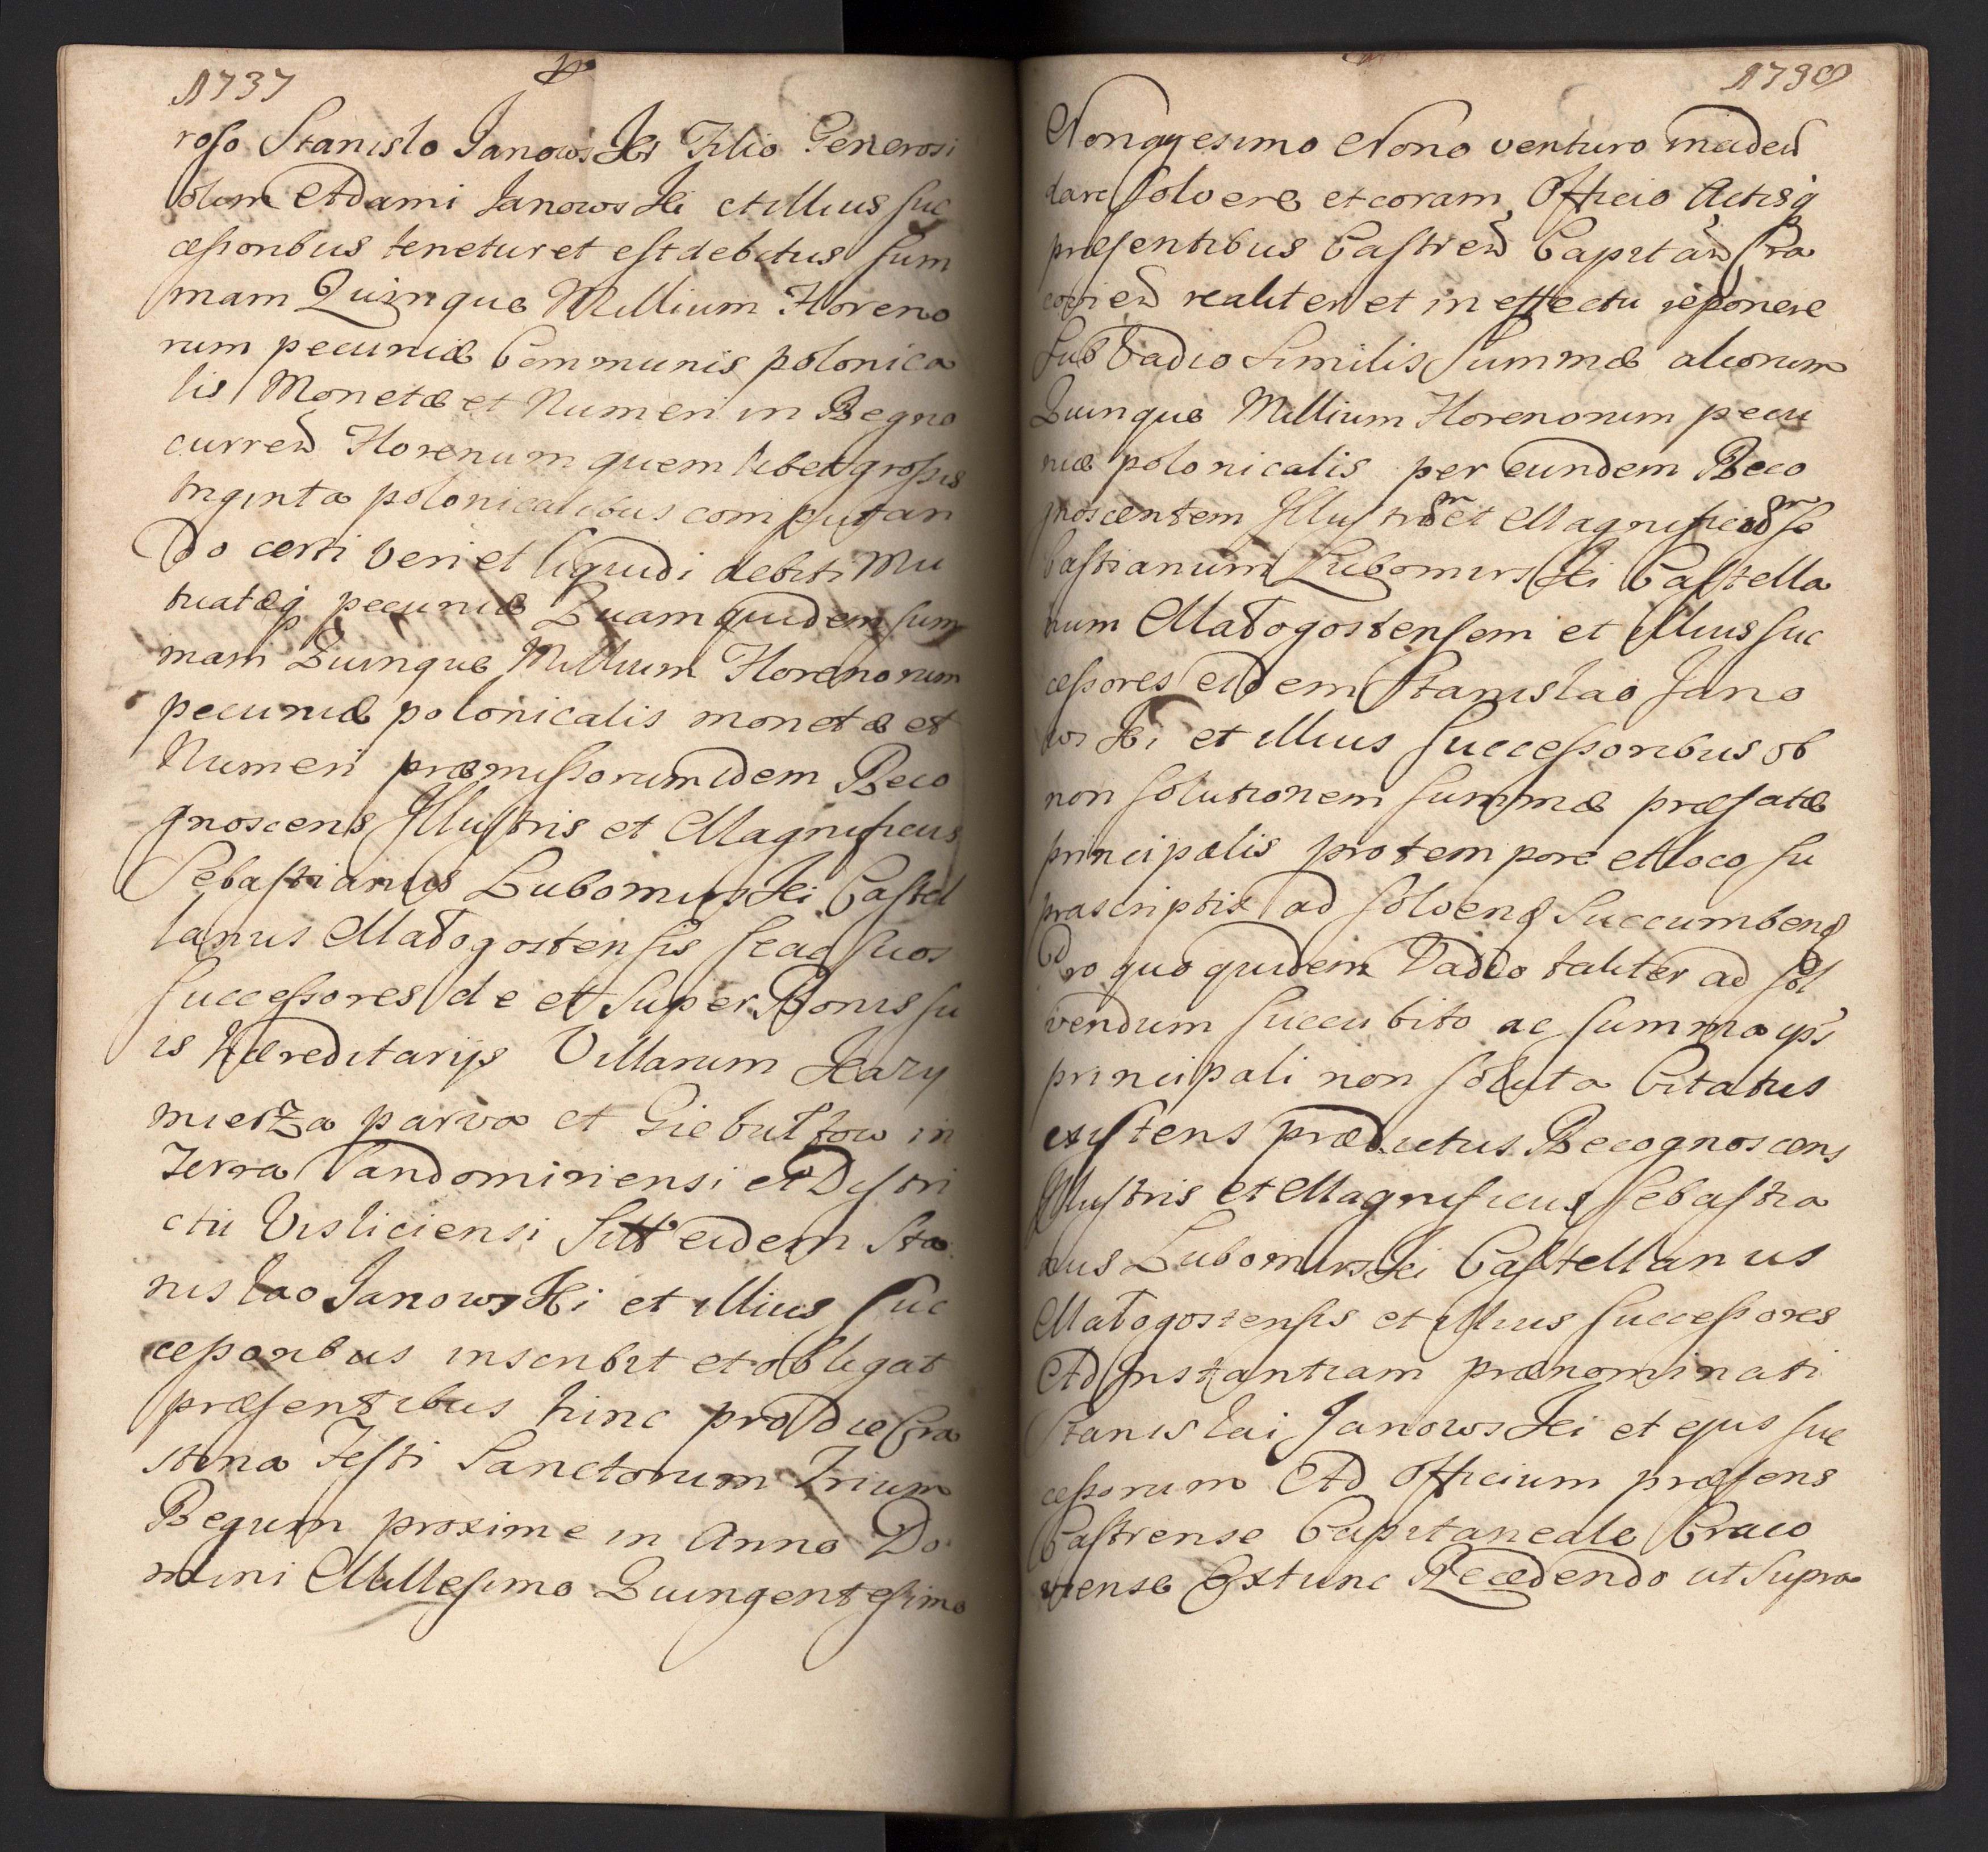 1737
roso Stanislo Janowski Filio Generosi
olim Adami Janowski et illius suc
cessoribus tenetur et est debitus sum
mam Quinque Millium Floreno
rum pecuniæ Communis polonica
lis Monetæ et Numeri in Regno
curren Florenum quemlibet grossis
triginta polonicalibus computan
do certi veri et liquidi debiti Mu
tuatæq pecuniæ Quam quidem sum
mam Quinque Millium Florenorum
pecuniæ polonicalis monetæ et
Numeri præmissorum idem Reco
gnoscens Illustris et Magnificus
Sebastianus Lubomirski Castel
lanus Małogostensis se ac suos
successores de et super Bonis su
is hæreditarijs Villarum Kazy
mierza parva et Giebułtow in
Terra Sandomiriensi et Distri
ctu Visliciensi Sitt eidem Sta
nislao Janowski et illius suc
cessoribus inscribit et obligat
præsentibus hinc pro die Cra
stina Festi Sanctorum Trium
Regum proxime in Anno Do
mini Millesimo Quingentesimo
1739
Nonagesimo Nono venturo
dare solvere et coram Officio Actisq
præsentibus Castren Capitan Cra
covien realiter et in effectu reponere
sub vadio similis summæ aliorum
Quinque Millium Florenorum pecu
niæ polonicalis per eundem Reco
gnoscentem Illustrem et Magnificum Se
bastianum Lubomirski Castella
num Małogostensem et illius suc
cessores eidem Stanislao Jano
wski et illius successoribus ob
non solutionem summæ præfatæ
principalis pro tempore et loco su
prascriptis ad solvend Succumbend
Pro quo quidem Vadio taliter ad sol
vendum succubito ac summa ips
principali non soluta Citatus
existens prædictus Recognoscens
Illustris et Magnificus Sebastia
nus Lubomirski Castellanus
Małogostensis et illius successores
Ad Instantiam prænominati
Stanislai Janowski et ejus suc
cessorum Ad Officium præsens
Castrense Capitaneale Craco
viense Extunc Recedendo ut supra